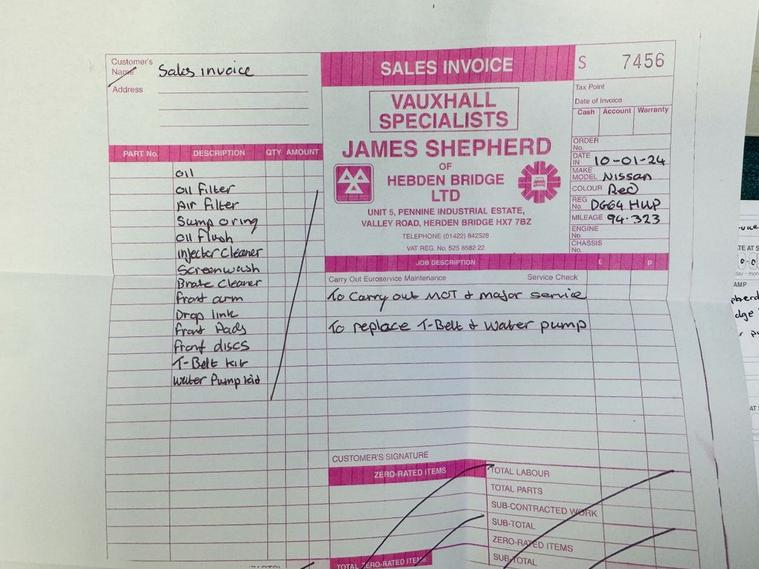 Customer's
Name Sales invoice
Address
PART No. DESCRIPTION QTY AMOUNT
Oil
Oil Filter
Air Filter
Sump o ring
Oil Flush
injector Cleaner
Screenwash
Brake Cleaner
Front arm
Drop link
Front Pads
Front discs
T-Belt kit
Water Pump kit
SALES INVOICE
VAUXHALL
SPECIALISTS
JAMES SHEPHERD
OF
HEBDEN BRIDGE
LTD
UNIT 5, PENNINE INDUSTRIAL ESTATE,
VALLEY ROAD, HEBDEN BRIDGE HX7 7BZ
TELEPHONE (01422) 842528
VAT REG. No. 525 8582 22
S 7456
Tax Point
Date of Invoice
Cash Account Warranty
ORDER
No.
DATE
IN 10-01-24
MAKE
MODEL Nissan
COLOUR Red
REG
No. DG64 HUP
MILEAGE 94-323
ENGINE
No.
CHASSIS
No.
JOB DESCRIPTION £ p
Carry Out Euroservice Maintenance Service Check
To Carry out MOT & major service
To replace T-Belt & Water pump
CUSTOMER'S SIGNATURE
ZERO-RATED ITEMS
TOTAL LABOUR
TOTAL PARTS
SUB-CONTRACTED WORK
SUB-TOTAL
ZERO-RATED ITEMS
SUB-TOTAL
TOTAL ZERO-RATED ITEMS